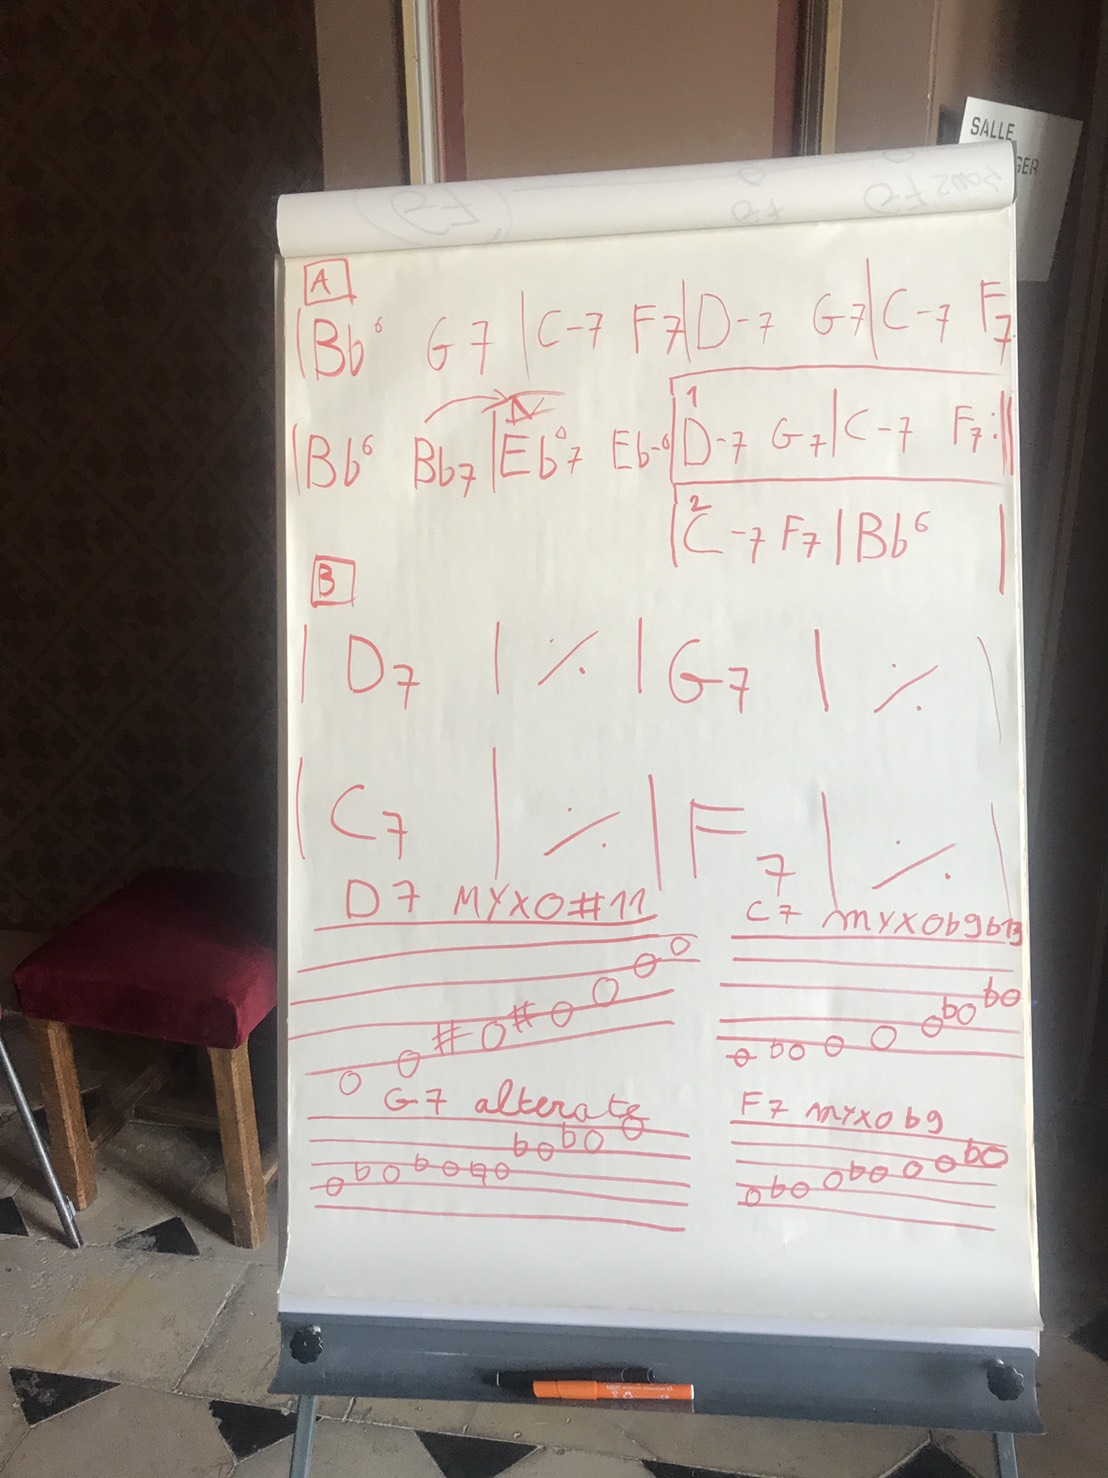 SALLE
GER
A
|Bb6 G7 | C-7 F7 | D-7 G7 | C-7 F7
|Bb6 Bb7 | EbΔ7 Eb-6 |1 D-7 G7 | C-7 F7 :||
|2 C-7 F7 | Bb6 |
B
| D7 | ٪ | G7 | ٪ |
| C7 | ٪ | F7 | ٪ |
D7 MYXO#11
C7 MYXOb9b13
G7 alterate
F7 MYXOb9